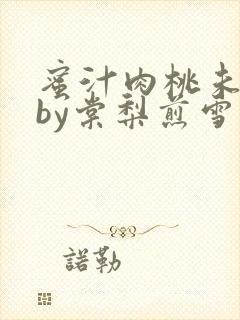 蜜汁肉桃未
by棠梨煎雪
諾勒